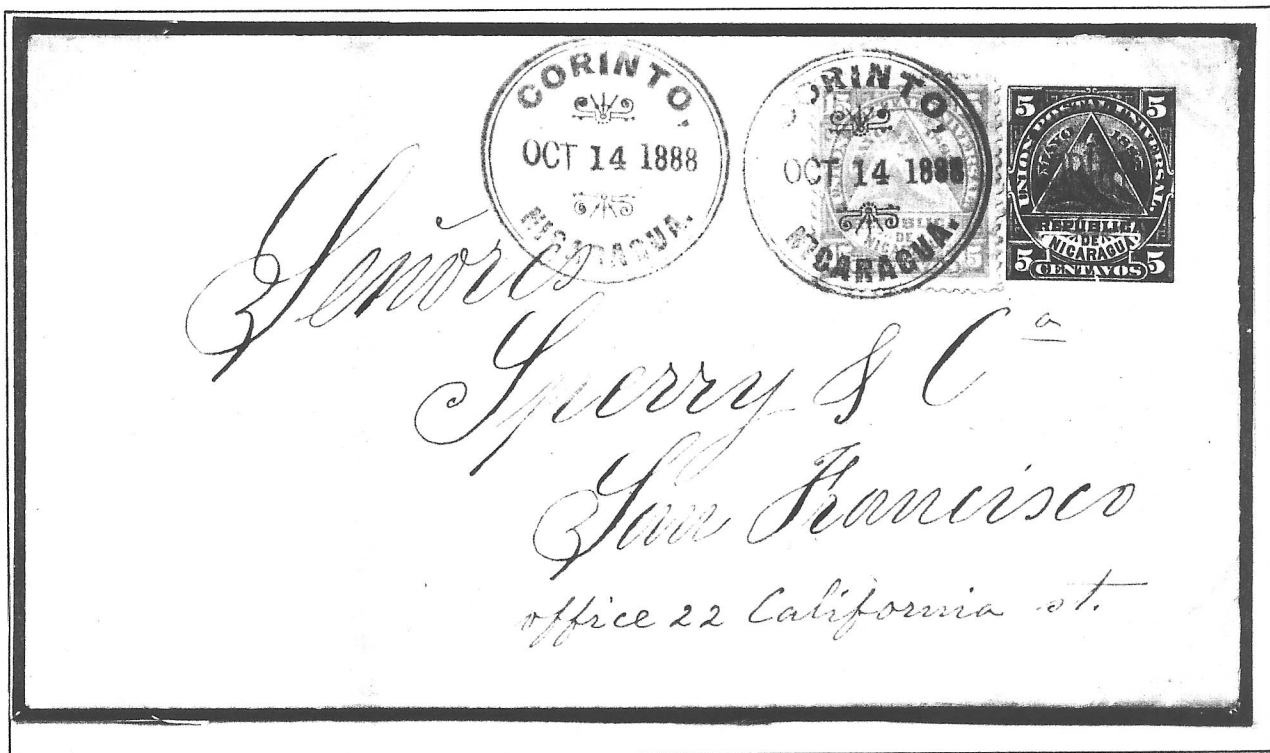 CORINTO,
OCT 14 1888
NICARAGUA.
CORINTO,
OCT 14 1888
NICARAGUA.
5 5
UNION POSTAL UNIVERSAL.
MAYO
REPUBLICA
DE
NICARAGUA
5 CENTAVOS 5
Señores
Sperry & Cª
San Francisco
office 22 California st.